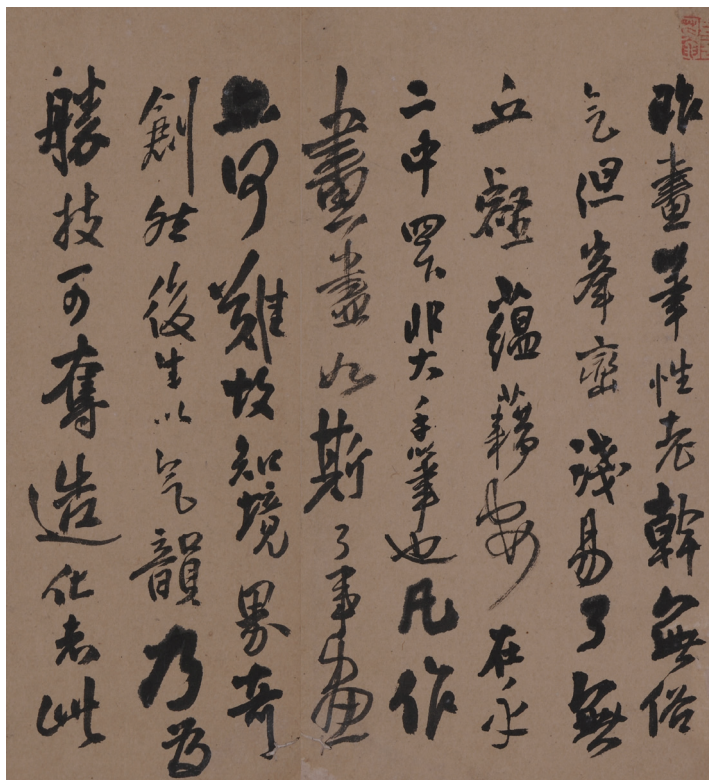 昨畫筆性老幹無俗
气但峯巒淺易了無
丘壑蘊藉安在乎
二中四下非大手筆也凡作
畫盡如斯了事畫
亦何難故知境界奇
創然後生以气韻乃為
勝技可奪造化者此